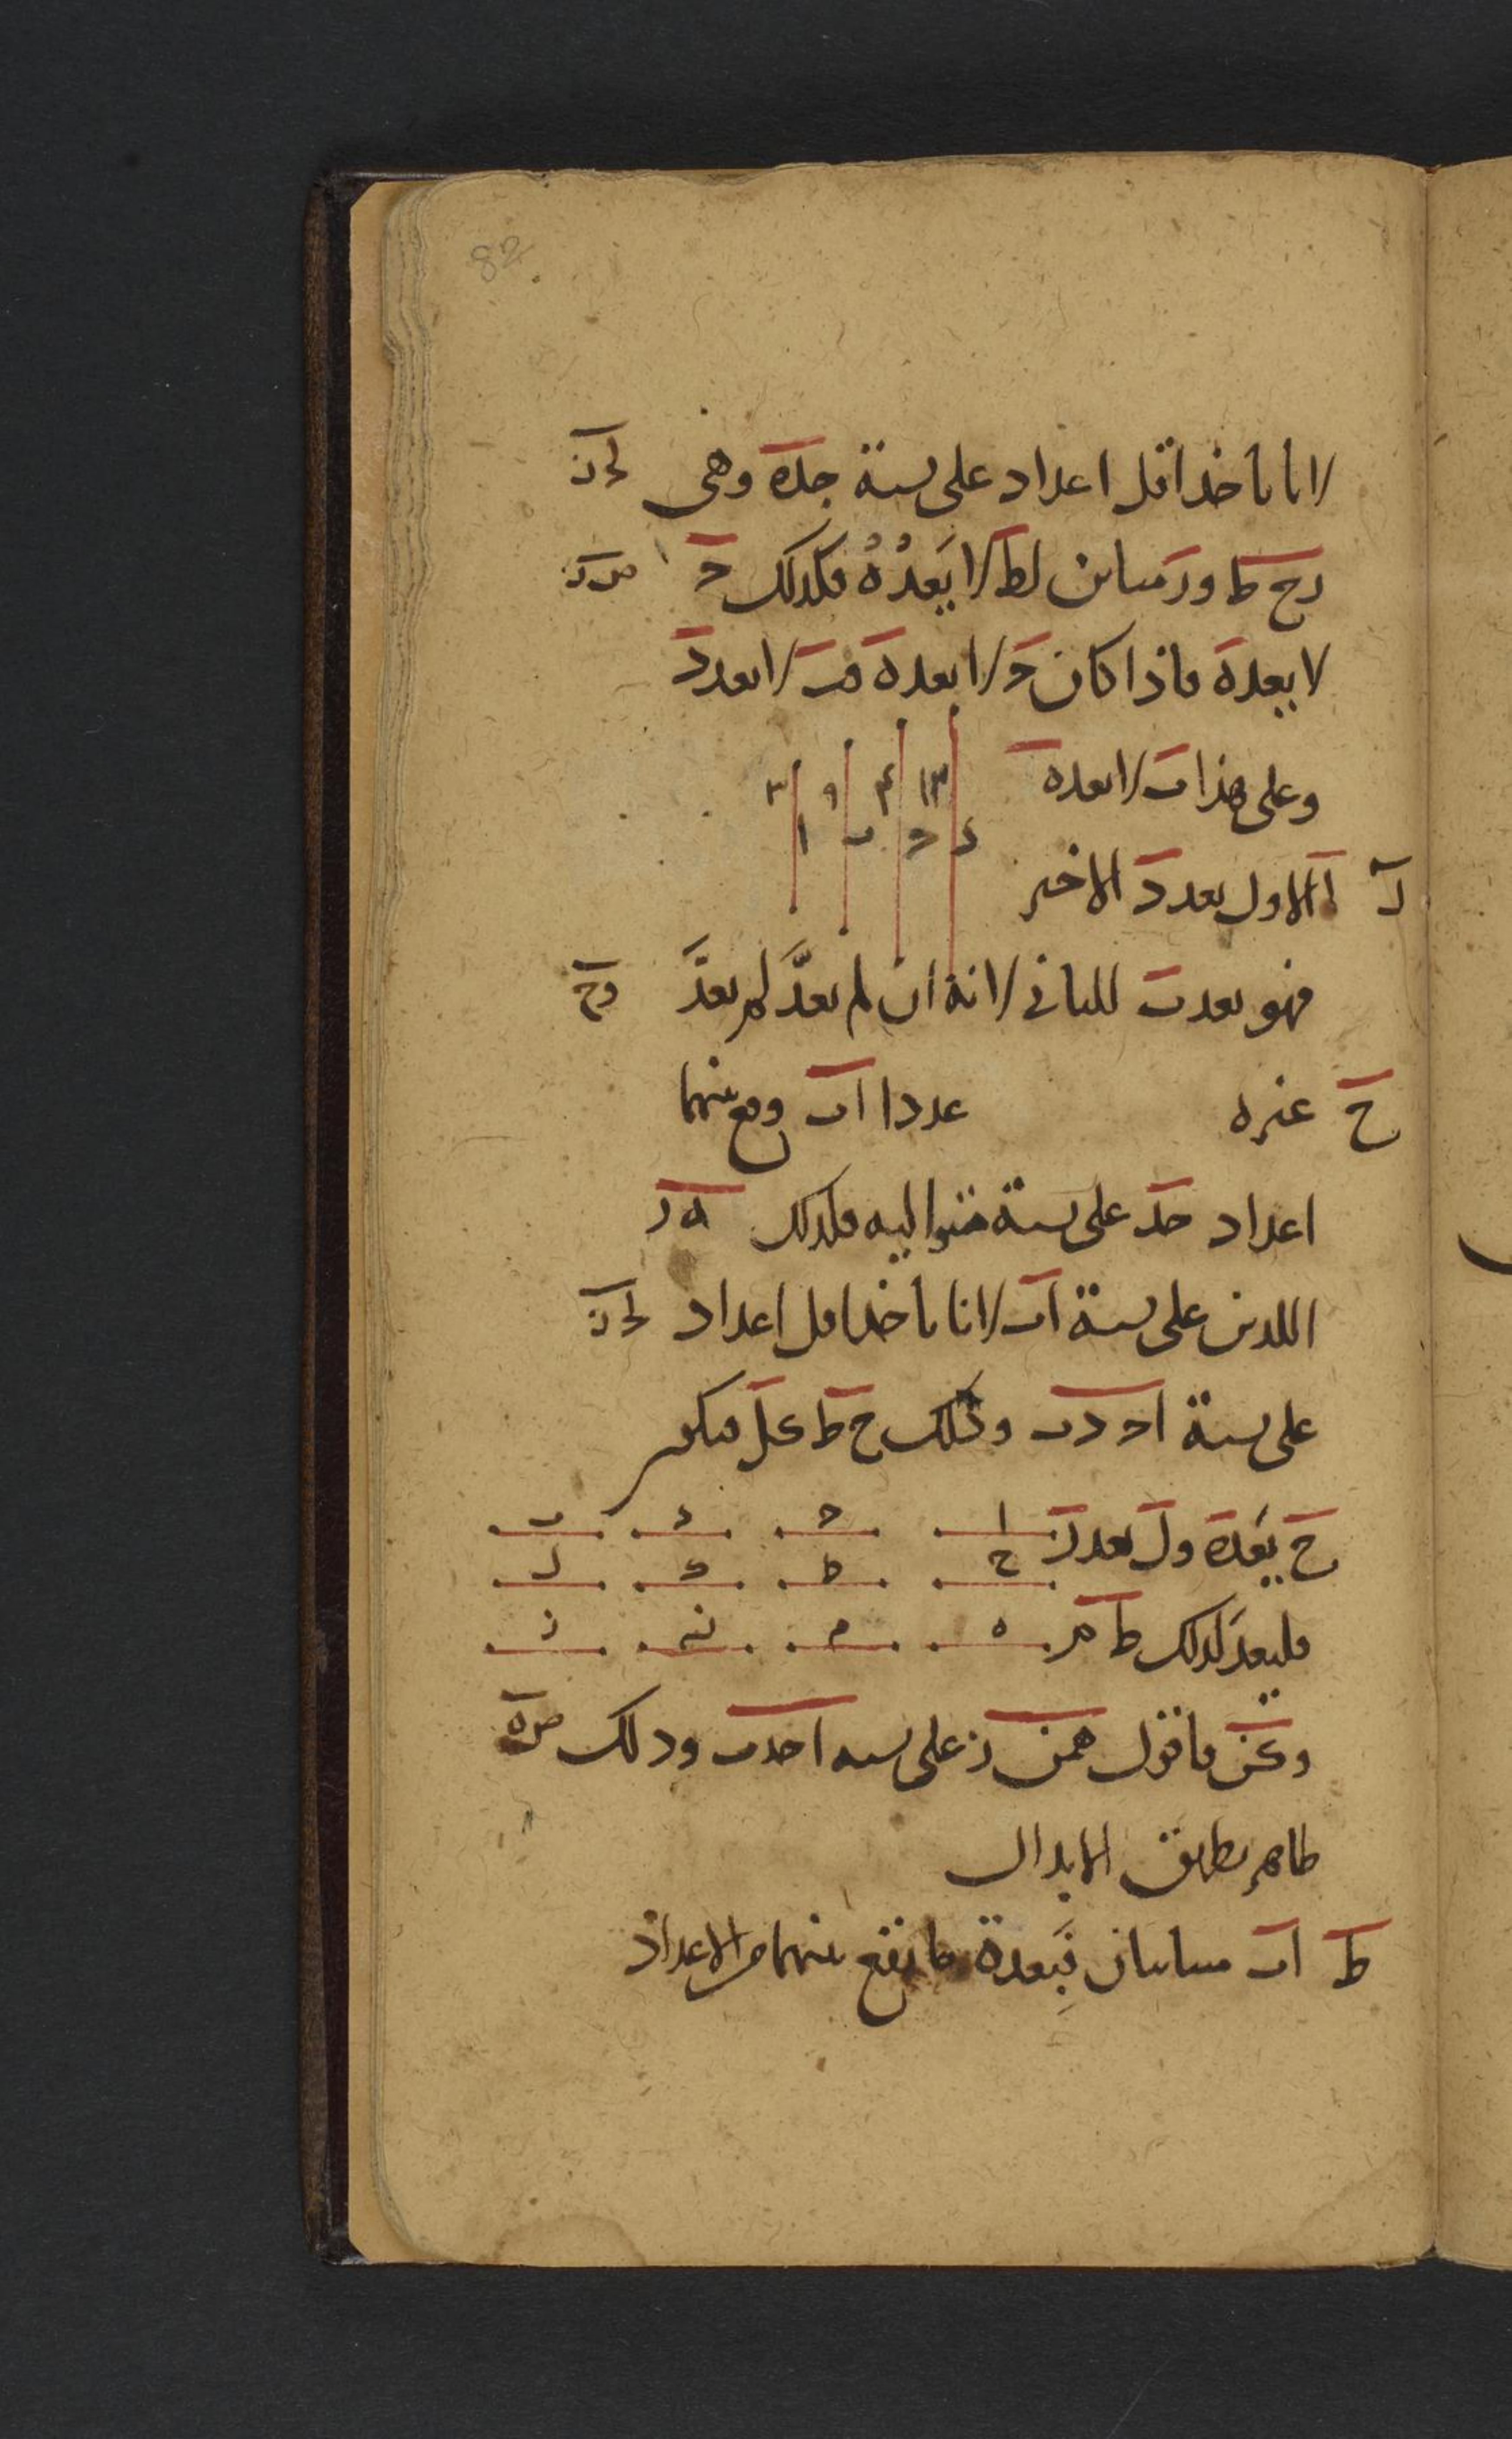 82
لانا ناخذ اقل اعداد على نسبة جده وهى لح ز
رح ط و ز مباين لط لا يَعُدُّهُ فكذلك ج
لا يعد ه فاذا كان ج لا يعد ه فب لا يعد د
وعلى هذا ب لا يعد ه
١٣ ۴ ٩ ٣
د ج ب ا
ز ا الاول يعد د الاخير
فهو يعد ب للثانى لانه ان لم يعدَّ لم يعدَّ وح
ح غيره عددا ا ب وقع بينهما
اعداد ج د على نسبة متواليه فكذلك ه ز
اللذين على نسبة ا ب لانا ناخذ اقل اعداد لح ز
على نسبة ا ج د ب وذلك ح ط ك ل فيكون
ا ج د ب
ح يَعد ه و ل يعد ز
ح ط ك ل
فليعد كذلك ط م
ه م ن ز
و ك ن فاقول ه م ن ز على نسبه ا ج د ب وذلك
ظاهر بطريق الابدال
ط ا ب متباينان فبعدة ما يقع بينهما من الاعداد